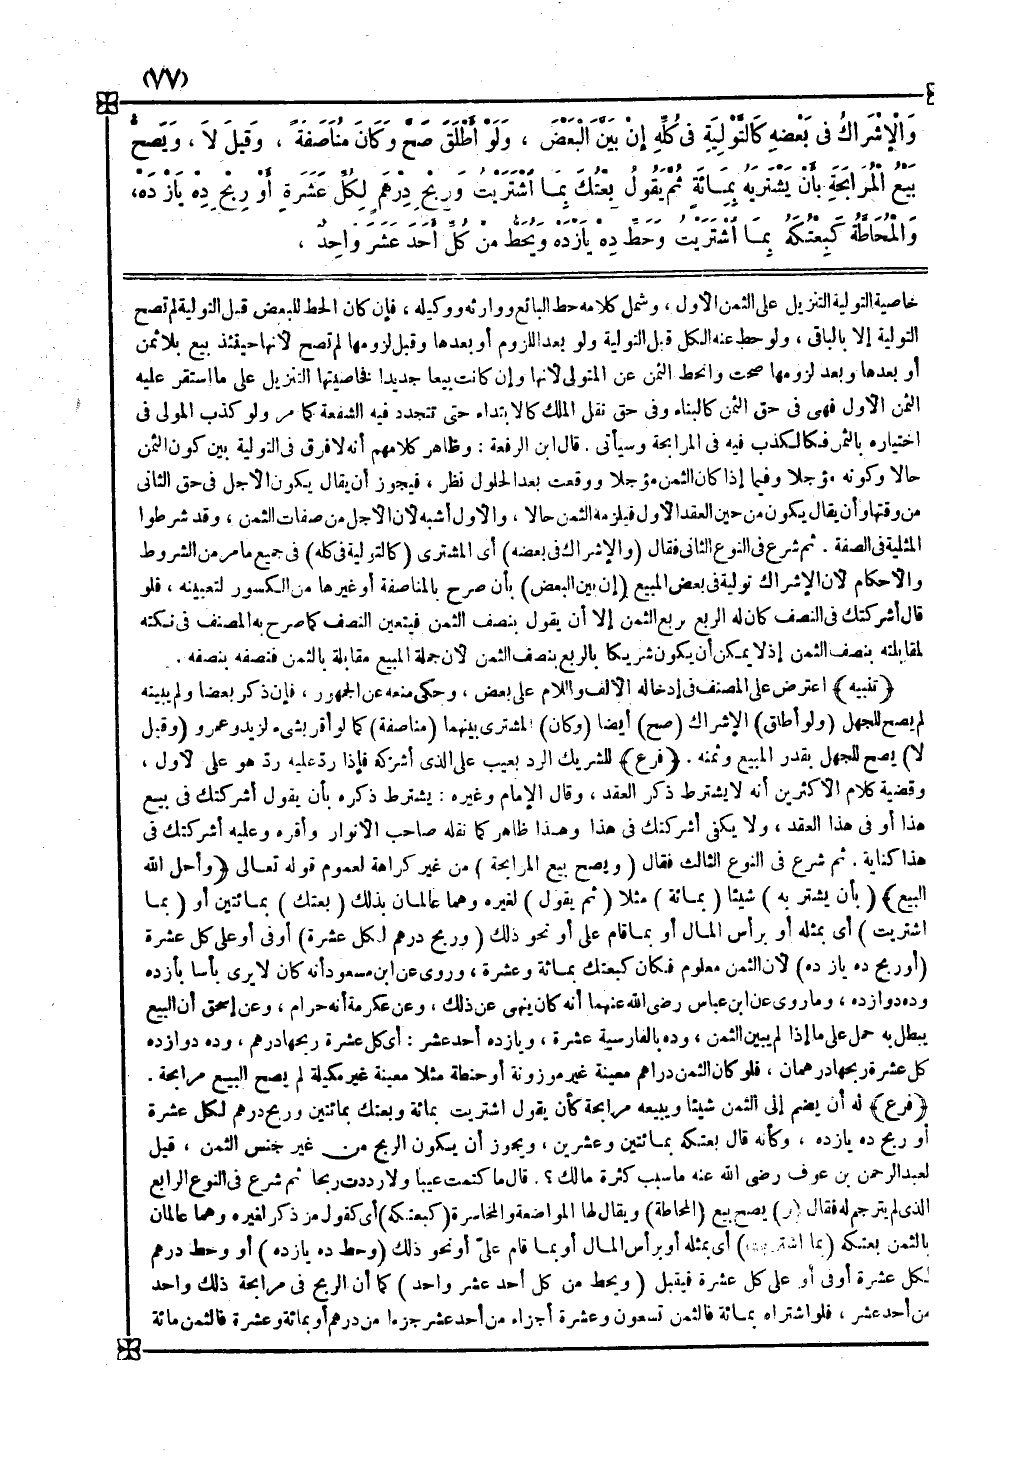 (٧٧)
وَالْإِشْرَاكُ فِى بَعْضِهِ كَالتَّوْلِيَةِ فِى كُلِّهِ إِنْ بَيَّنَ الْبَعْضَ ، وَلَوْ أَطْلَقَ صَحَّ وَكَانَ مُنَاصَفَةً ، وَقِيلَ لَا ، وَيَصِحُّ
بَيْعُ الْمُرَابَحَةِ بِأَنْ يَشْتَرِيَهُ بِمِائَةٍ ثُمَّ يَقُولُ بِعْتُكَ بِمَا اشْتَرَيْتُ وَرِبْحِ دِرْهَمٍ لِكُلِّ عَشَرَةٍ أَوْ رِبْحِ دِهْ يَازْ دَهْ،
وَالْمُحَاطَّةُ كَبِعْتُكَهُ بِمَا اشْتَرَيْتُ وَحَطِّ دِهْ يَازْدَهْ وَيُحَطُّ مِنْ كُلِّ أَحَدَ عَشَرَ وَاحِدٌ ،
خاصية التولية التنزيل على الثمن الأول ، وشمل كلامه حط البائع ووارثه ووكيله ، فإن كان الحط للبعض قبل التولية لم تصح
التولية إلا بالباقى ، ولو حط عنه الكل قبل التولية ولو بعد اللزوم أو بعدها وقبل لزومها لم تصح لأنها حينئذ بيع بلا ثمن
أو بعدها وبعد لزومها صحت وانحط الثمن عن المتولى لأنها وإن كانت بيعا جديدا فخاصيتها التنزيل على ما استقر عليه
الثمن الأول فهى فى حق الثمن كالبناء وفى حق نقل الملك كالابتداء حتى تتجدد فيه الشفعة كما مر ولو كذب المولى فى
اختياره بالثمن فكالكذب فيه فى المرابحة وسيأتى . قال ابن الرفعة : وظاهر كلامهم أنه لا فرق فى التولية بين كون الثمن
حالا وكونه مؤجلا وفيما إذا كان الثمن مؤجلا ووقعت بعد الحلول نظر ، فيجوز أن يقال يكون الأجل فى حق الثانى
من وقتها وأن يقال يكون من حين العقد الأول فيلزمه الثمن حالا ، والأول أشبه لأن الأجل من صفات الثمن ، وقد شرطوا
المثلية فى الصفة . ثم شرع فى النوع الثانى فقال (والإشراك فى بعضه) أى المشترى (كالتولية فى كله) فى جميع ما مر من الشروط
والأحكام لأن الإشراك تولية فى بعض المبيع (إن بين البعض) بأن صرح بالمناصفة أو غيرها من الكسور لتعيينه ، فلو
قال أشركتك فى النصف كان له الربع بربع الثمن إلا أن يقول بنصف الثمن فيتعين النصف كما صرح به المصنف فى نكته
لمقابلته بنصف الثمن إذ لا يمكن أن يكون شريكا بالربع بنصف الثمن لأن جملة المبيع مقابلة بالثمن فنصفه بنصفه .
﴿تنبيه﴾ اعترض على المصنف فى إدخاله الألف واللام على بعض ، وحكى منعه عن الجمهور ، فإن ذكر بعضا ولم يبينه
لم يصح للجهل (ولو أطلق) الإشراك (صح) أيضا (وكان) المشترى بينهما (مناصفة) كما لو أقر بشىء لزيد وعمرو (وقيل
لا) يصح للجهل بقدر المبيع وثمنه . ﴿فرع﴾ للشريك الرد بعيب على الذى أشركه فإذا ردّ عليه ردّ هو على لأول ،
وقضية كلام الأكثرين أنه لا يشترط ذكر العقد ، وقال الإمام وغيره : يشترط ذكره بأن يقول أشركتك فى بيع
هذا أو فى هذا العقد ، ولا يكفى أشركتك فى هذا وهذا ظاهر كما نقله صاحب الأنوار وأقره وعليه أشركتك فى
هذا كناية . ثم شرع فى النوع الثالث فقال ( ويصح بيع المرابحة ) من غير كراهة لعموم قوله تعالى ﴿وأحل الله
البيع﴾ ( بأن يشتريه ) شيئا ( بمائة ) مثلا ( ثم يقول ) لغيره وهما عالمان بذلك ( بعتك ) بمائتين أو ( بما
اشتريت ) أى بمثله أو برأس المال أو بما قام على أو نحو ذلك ( وربح درهم لكل عشرة) أو فى أو على كل عشرة
(أو ربح ده ياز ده) لأن الثمن معلوم فكان كبعتك بمائة وعشرة ، وروى عن ابن مسعود أنه كان لا يرى بأسا بأزده
وده دوازده ، وما روى عن ابن عباس رضى الله عنهما أنه كان ينهى عن ذلك ، وعن عكرمة أنه حرام ، وعن إسحق أن البيع
يبطل به حمل على ما إذا لم يبين الثمن ، وده بالفارسية عشرة ، ويازده أحد عشر : أى كل عشرة ربحها درهم ، وده دوازده
كل عشرة ربحها درهمان ، فلو كان الثمن دراهم معينة غير موزونة أو حنطة مثلا معينة غير مكيلة لم يصح البيع مرابحة .
﴿فرع﴾ له أن يضم إلى الثمن شيئا ويبيعه مرابحة كأن يقول اشتريت بمائة وبعتك بمائتين وربح درهم لكل عشرة
أو ربح ده يازده ، وكأنه قال بعتكه بمائتين وعشرين ، ويجوز أن يكون الربح من غير جنس الثمن ، قيل
لعبدالرحمن بن عوف رضى الله عنه ما سبب كثرة مالك ؟ . قال ما كتمت عيبا ولا رددت ربحا ثم شرع فى النوع الرابع
الذى لم يترجم له فقال (و) يصح بيع (المحاطة) ويقال لها المواضعة والمخاسرة (كبعتكه) أى كقول من ذكر لغيره وهما عالمان
بالثمن بعتكه (بما اشتريت) أى بمثله أو برأس المال أو بما قام علىّ أو نحو ذلك (وحط ده يازده ) أو وحط درهم
لكل عشرة أو فى أو على كل عشرة فيقبل ( ويحط من كل أحد عشر واحد ) كما أن الربح فى مرابحة ذلك واحد
من أحد عشر ، فلو اشتراه بمائة فالثمن تسعون وعشرة أجزاء من أحد عشر جزءا من درهم أو بمائة وعشرة فالثمن مائة